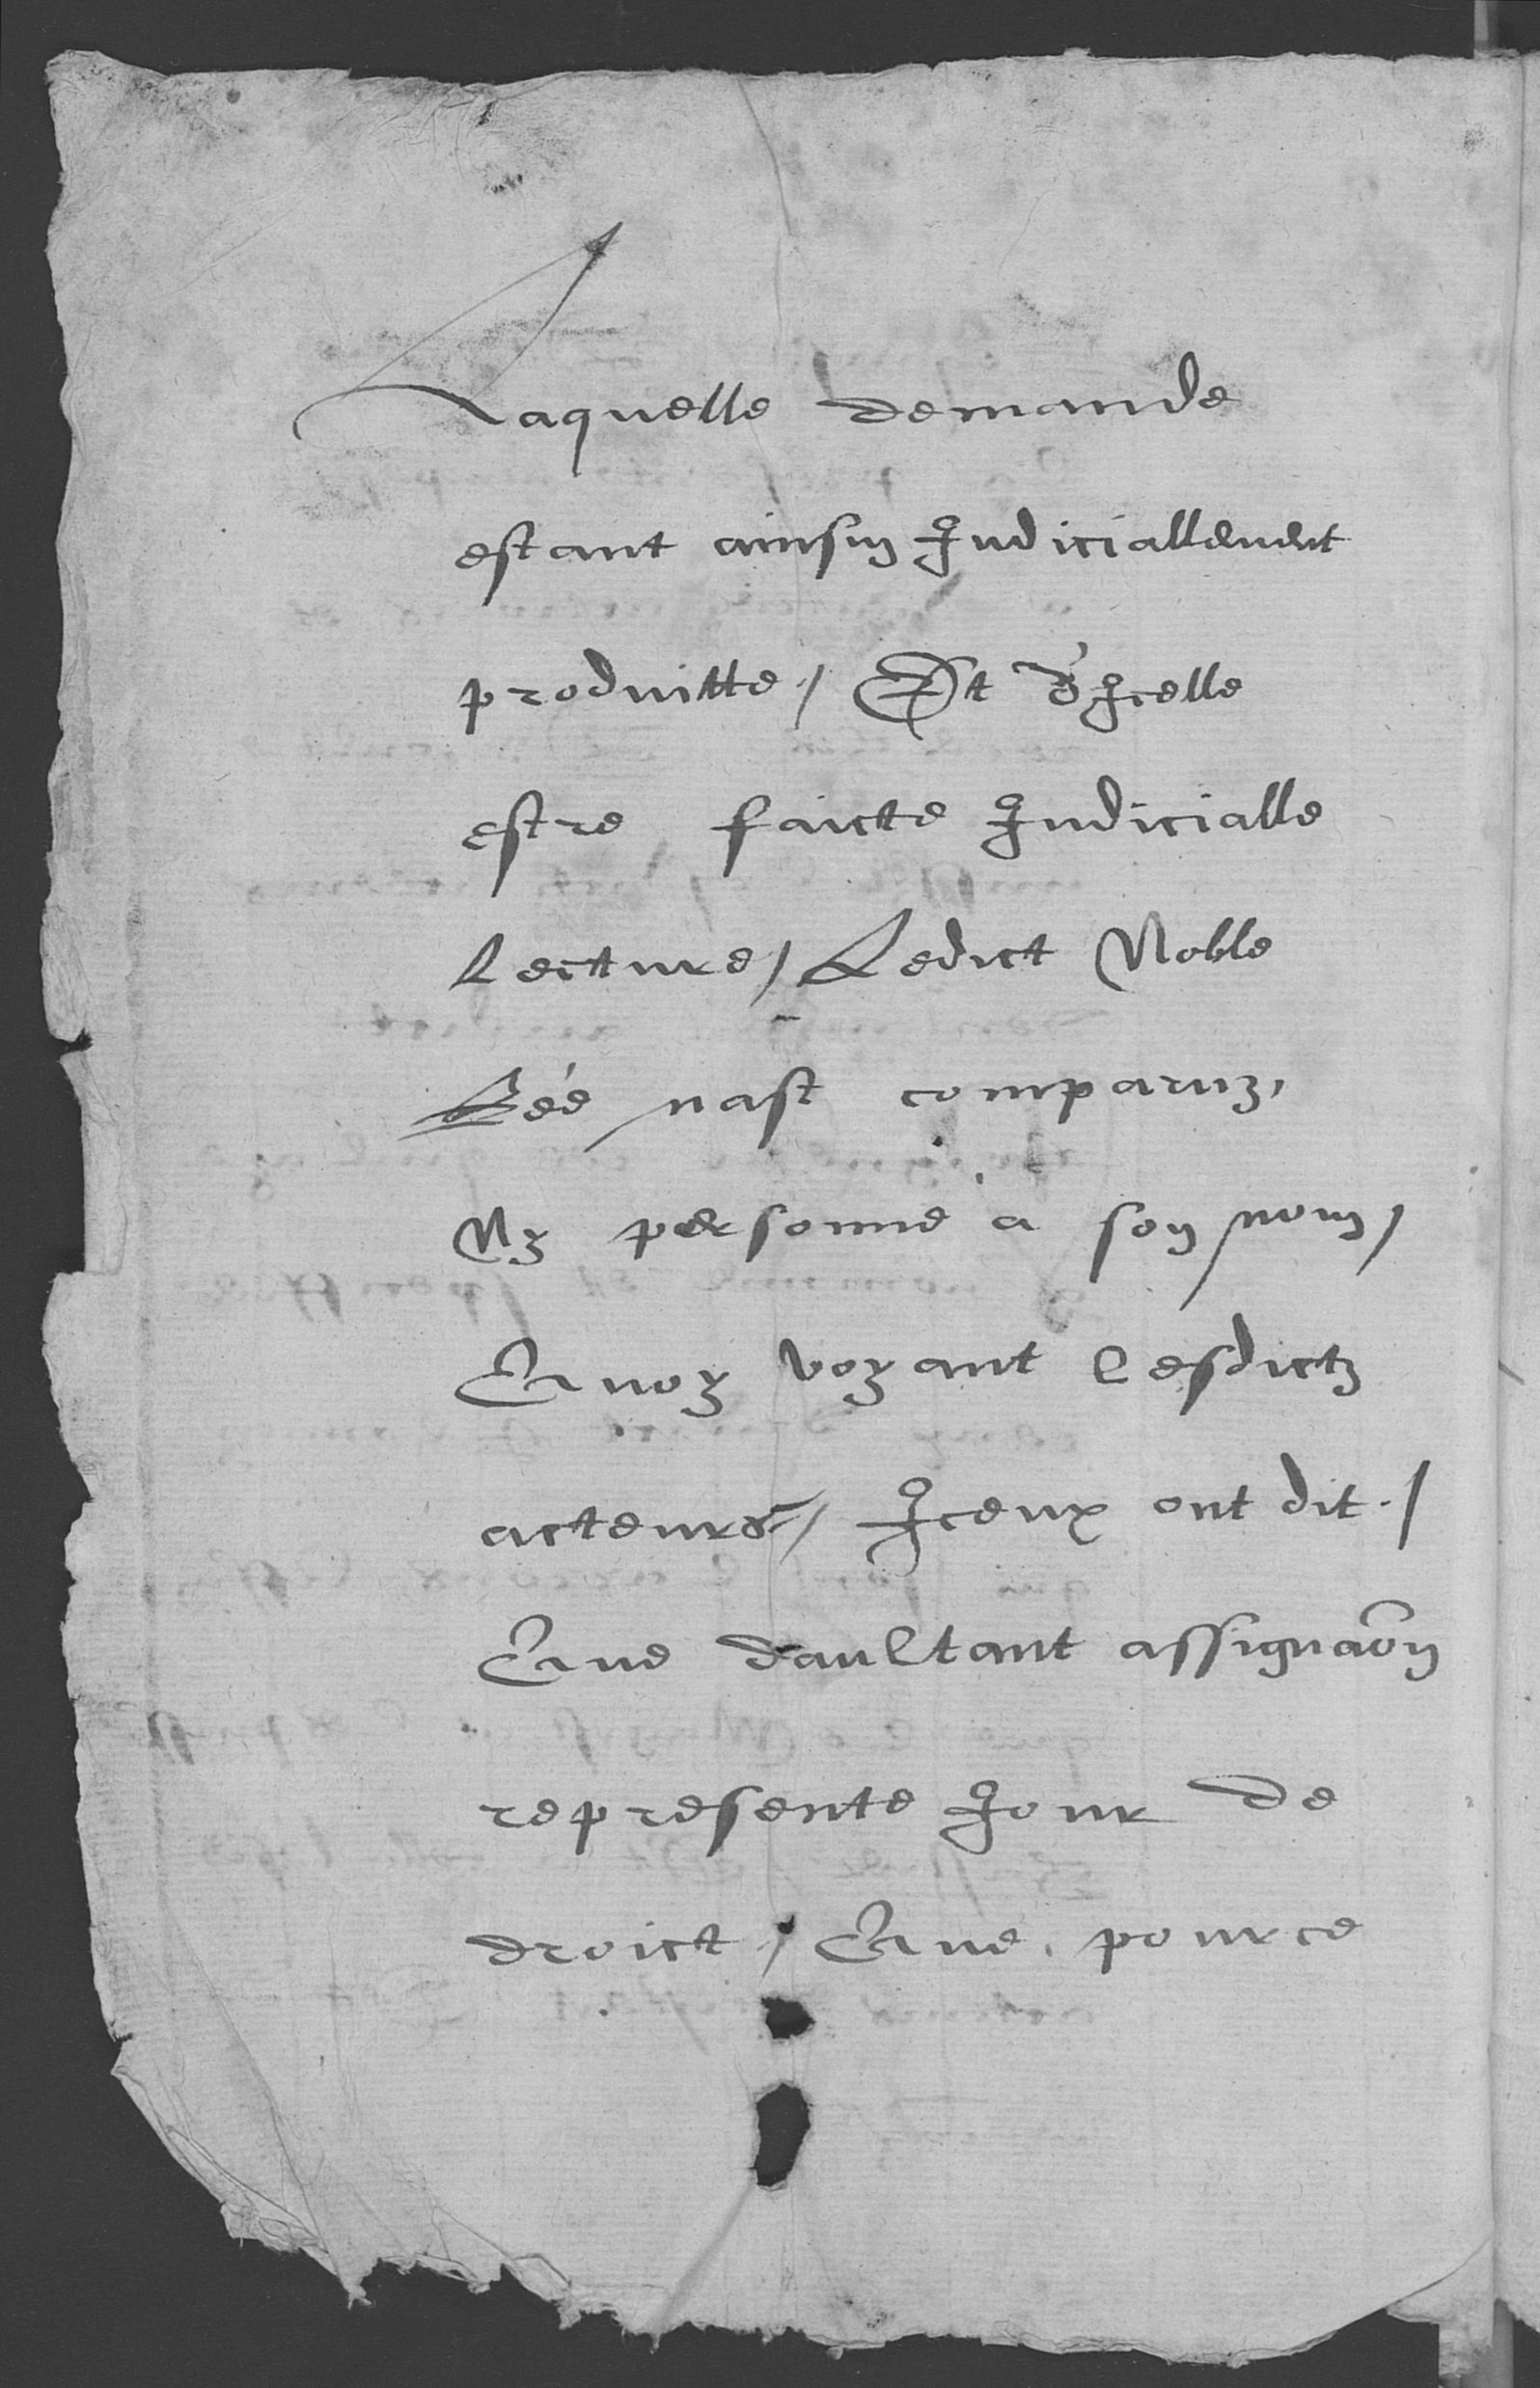 Laquelle demande
estant ainsin Judiciallement
produitte / Et d'Jcelle
estre faicte Judicialle
Lecture / Ledict Noble
Reé nast comparuz,
Ny personne a son nom /
Quoy voyant Lesdictz
acteurs / Jceux ont dit . /
Que daultant assignaon
represente Jour de
droict / Que pource